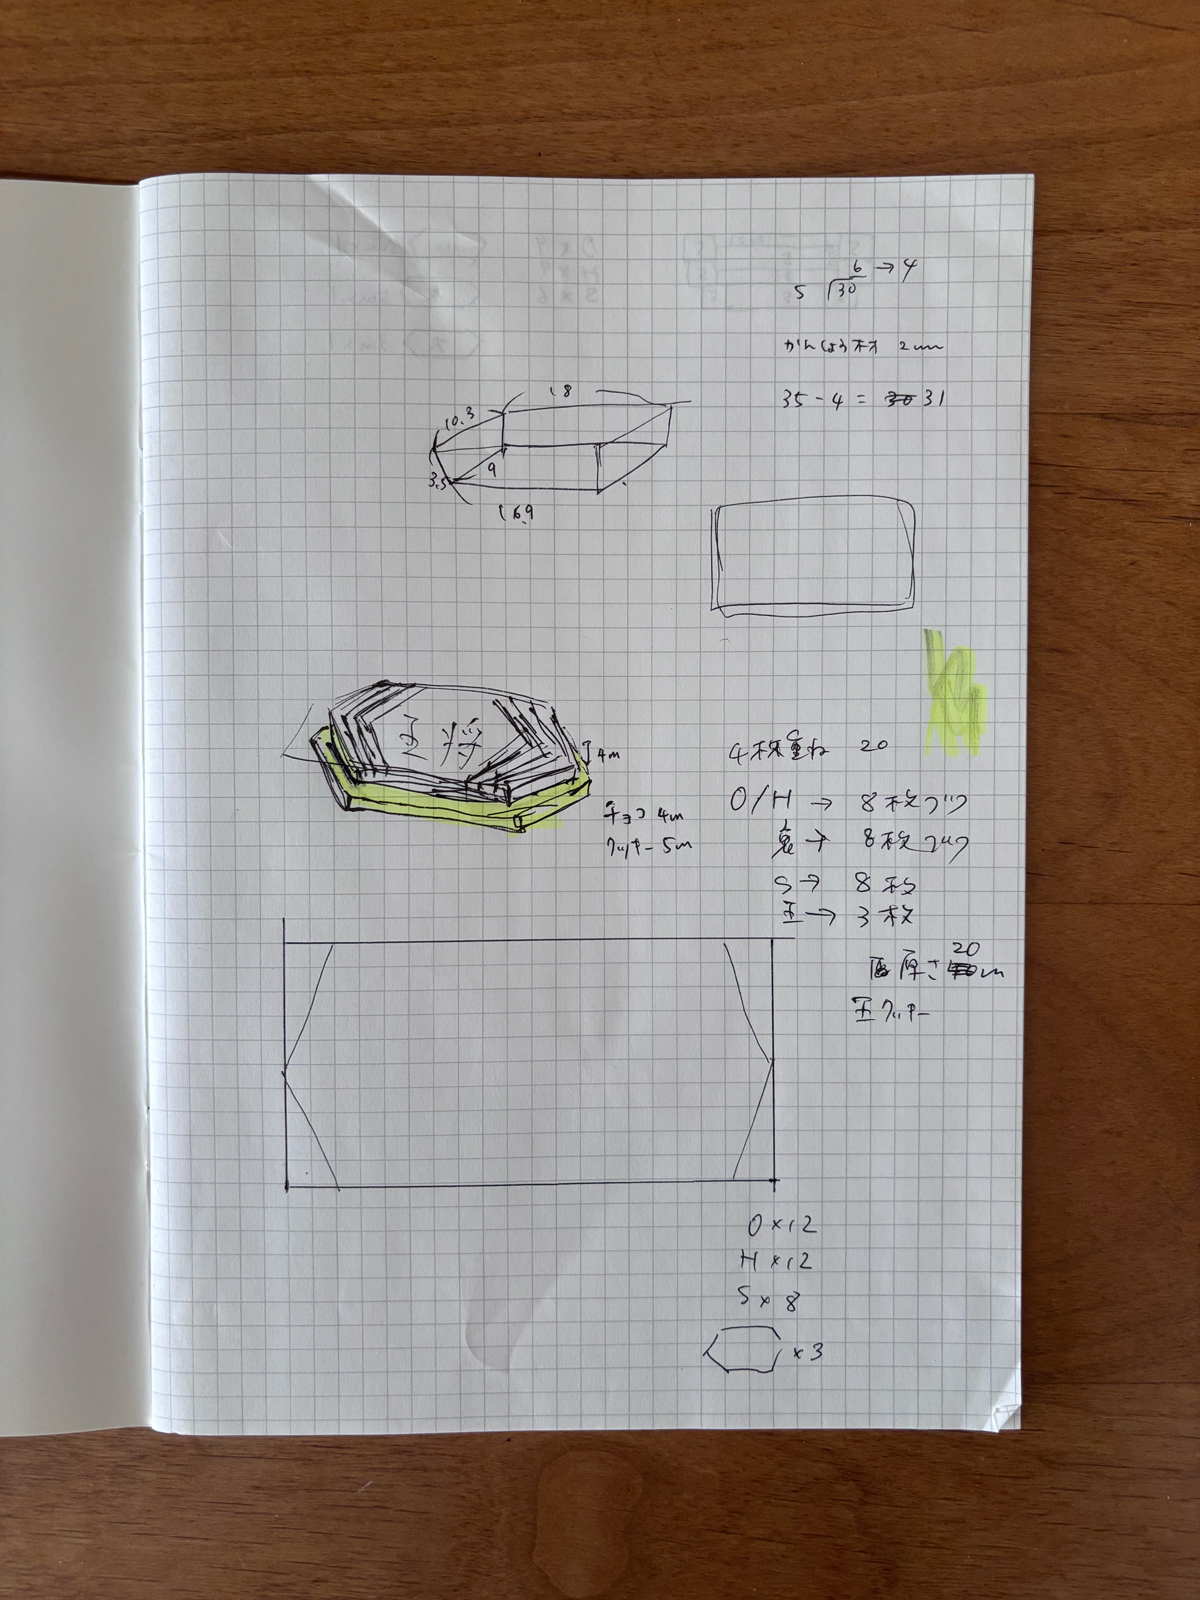 6 → 4
5 √30
かんしょう材 2mm
35 - 4 = 31
18
10.3
9
3.5
16.9
王将
4m
チョコ 4m
クッキー 5m
4枚重ね 20
O/H → 8枚づつ
裏 → 8枚づつ
S → 8枚
王 → 3枚
厚さ 20m
王クッキー
O×12
H×12
S×8
×3